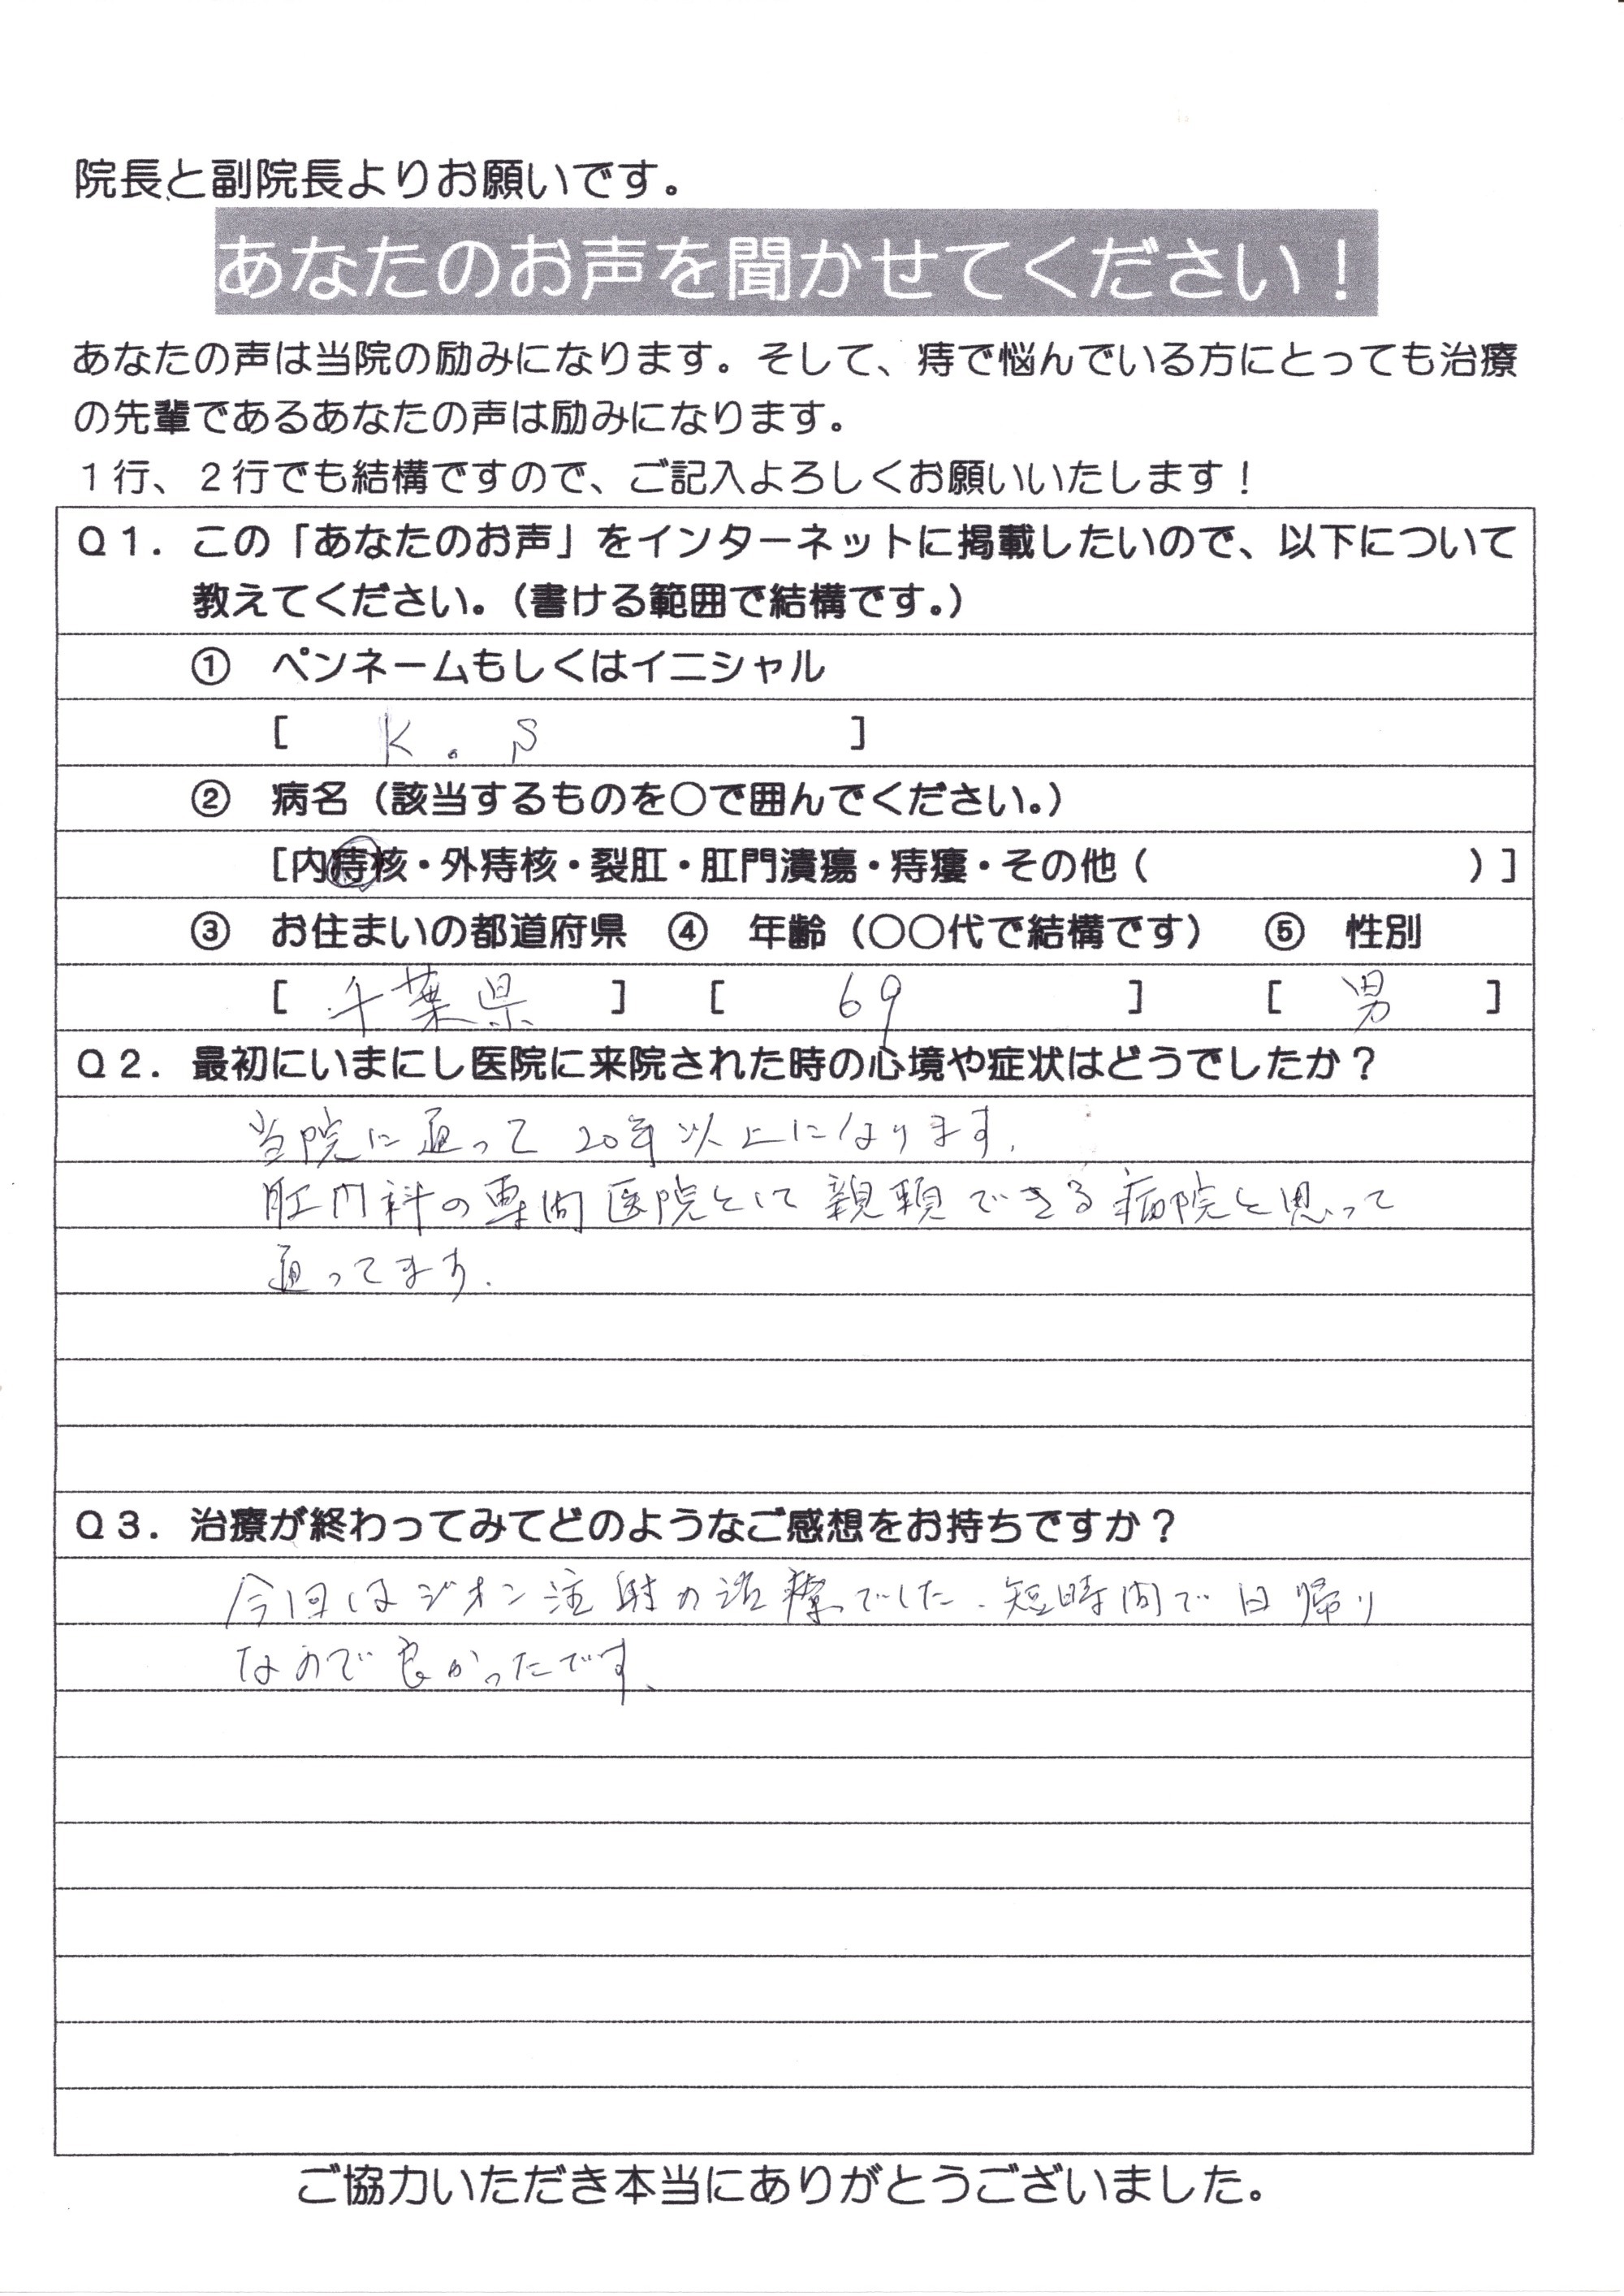 院長と副院長よりお願いです。
あなたのお声を聞かせてください！
あなたの声は当院の励みになります。そして、痔で悩んでいる方にとっても治療
の先輩であるあなたの声は励みになります。
１行、２行でも結構ですので、ご記入よろしくお願いいたします！
Ｑ１．この「あなたのお声」をインターネットに掲載したいので、以下について
教えてください。（書ける範囲で結構です。）
① ペンネームもしくはイニシャル
[ K.S ]
② 病名（該当するものを○で囲んでください。）
[内痔核・外痔核・裂肛・肛門潰瘍・痔瘻・その他（ ）]
③ お住まいの都道府県 ④ 年齢（○○代で結構です） ⑤ 性別
[ 千葉県 ] [ 69 ] [ 男 ]
Ｑ２．最初にいまにし医院に来院された時の心境や症状はどうでしたか？
当院に通って20年以上になります.
肛内科の専問医院として親頼できる病院と思って
通ってます.
Ｑ３．治療が終わってみてどのようなご感想をお持ちですか？
今回はジオン注射の治療でした.短時間で日帰り
なので良かったです、
ご協力いただき本当にありがとうございました。